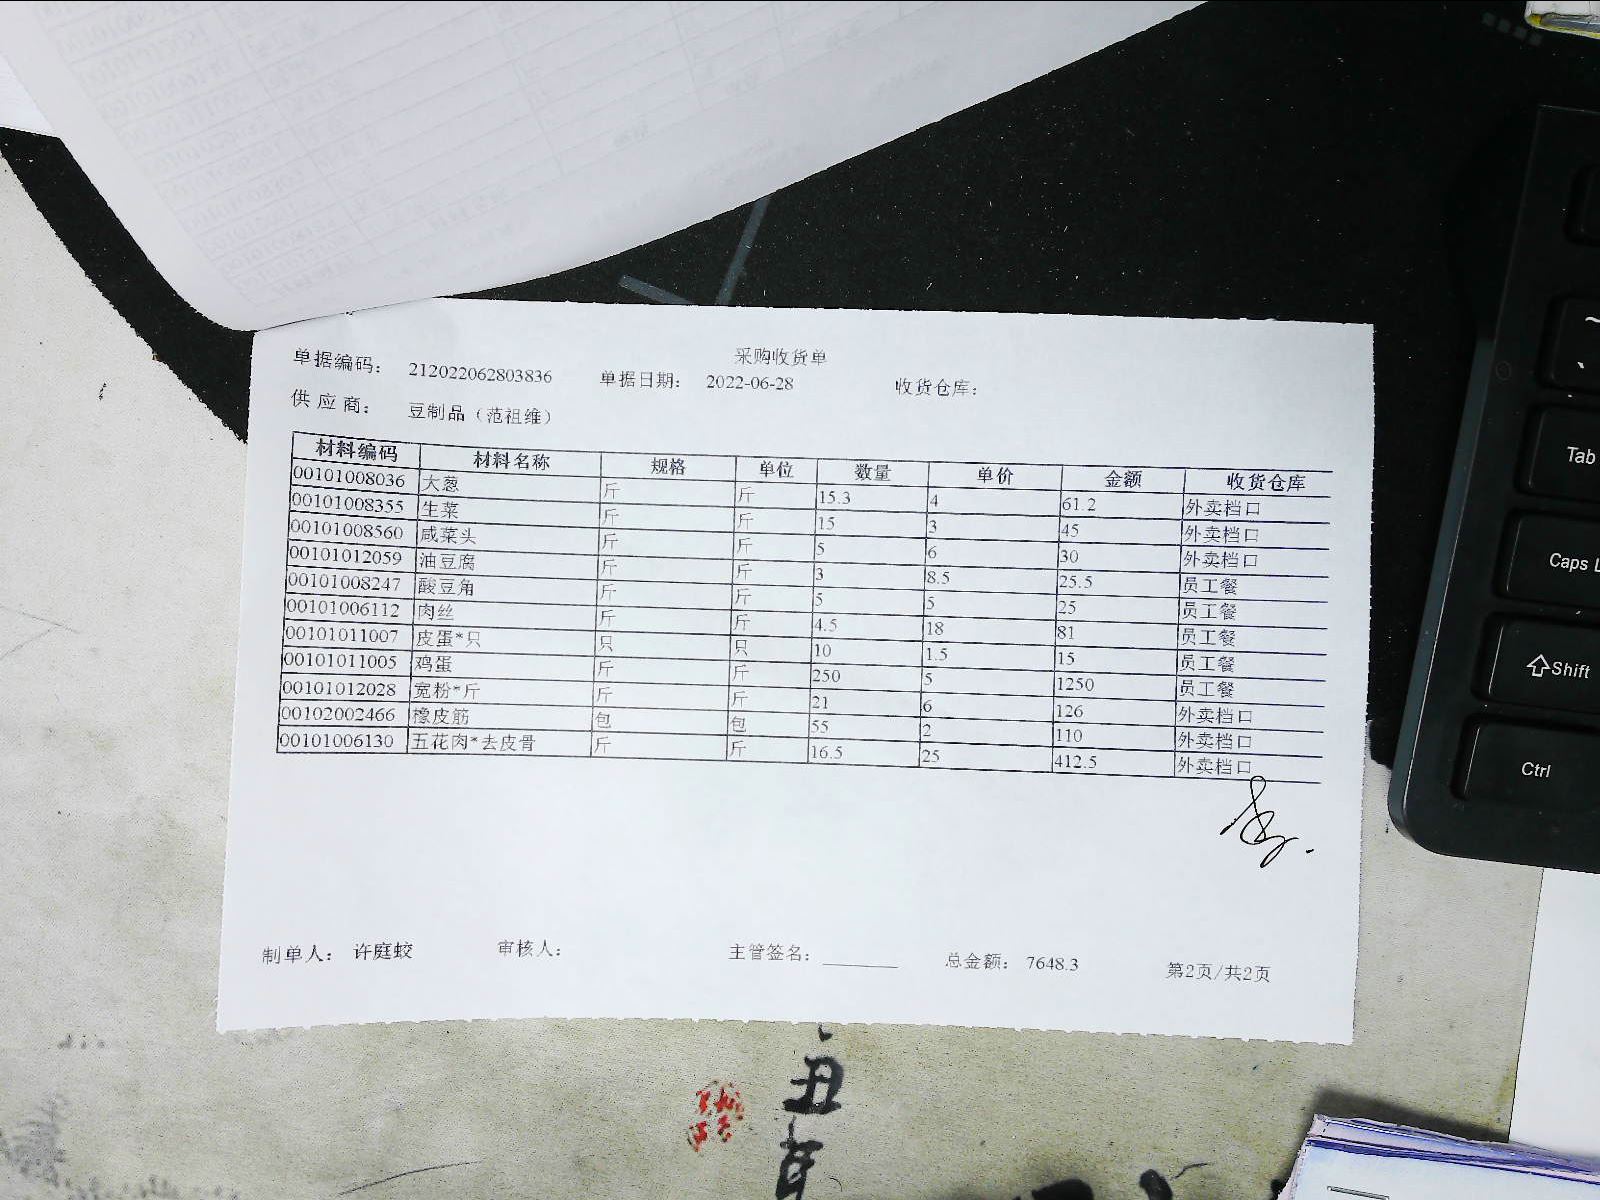 采购收货单
单据编码： 212022062803836 单据日期： 2022-06-28 收货仓库：
供 应 商： 豆制品（范祖维）
材料编码 材料名称 规格 单位 数量 单价 金额 收货仓库
00101008036 大葱 斤 斤 15.3 4 61.2 外卖档口
00101008355 生菜 斤 斤 15 3 45 外卖档口
00101008560 咸菜头 斤 斤 5 6 30 外卖档口
00101012059 油豆腐 斤 斤 3 8.5 25.5 员工餐
00101008247 酸豆角 斤 斤 5 5 25 员工餐
00101006112 肉丝 斤 斤 4.5 18 81 员工餐
00101011007 皮蛋*只 只 只 10 1.5 15 员工餐
00101011005 鸡蛋 斤 斤 250 5 1250 员工餐
00101012028 宽粉*斤 斤 斤 21 6 126 外卖档口
00102002466 橡皮筋 包 包 55 2 110 外卖档口
00101006130 五花肉*去皮骨 斤 斤 16.5 25 412.5 外卖档口
制单人： 许庭蛟 审核人： 主管签名：________ 总金额： 7648.3 第2页/共2页
~
Tab
Caps L
Shift
Ctrl
丑